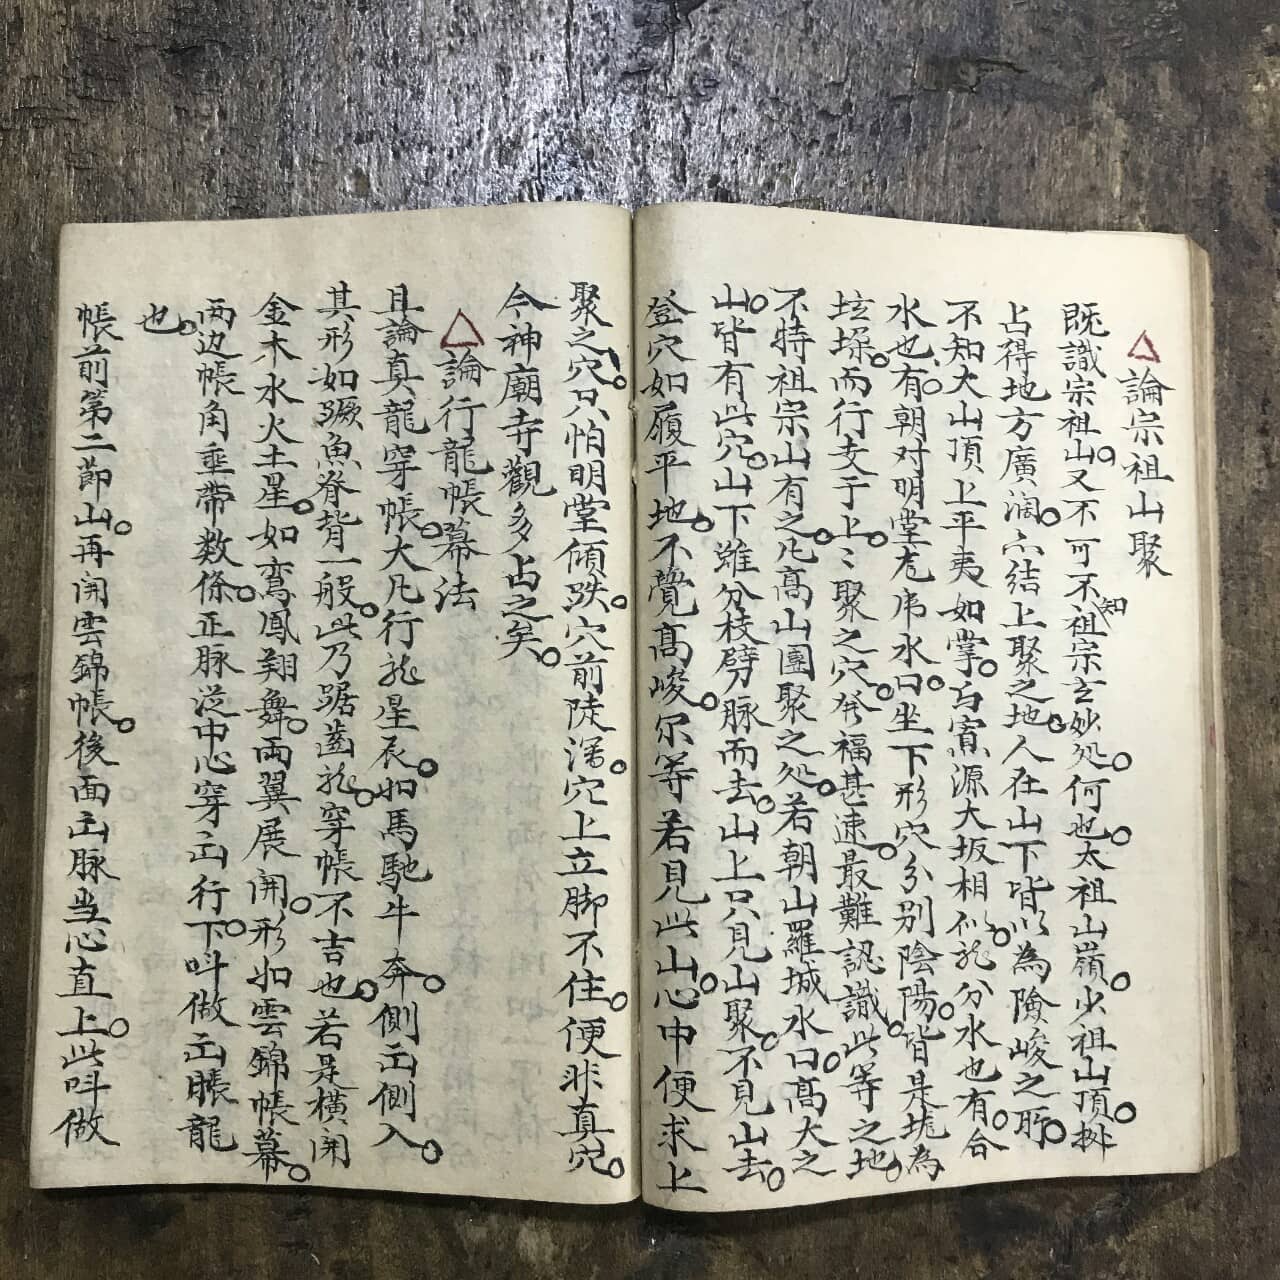 △論宗祖山聚
既識宗祖山。又不可不知祖宗玄妙処。何也。太祖山嶺。少祖山頂。
占得地方廣濶。亦結上聚之地。人在山下。皆以為險峻之所。
不知大山頂上平夷如掌。与窮源大坂相似。龍分水也。有合
水也。有朝对明堂。虎串水口。坐下形穴。分別陰陽。皆是坑為
垓墚。而行支于上。上聚之穴。発福甚速。最難認識。此等之地。
不特祖宗山有之。凡高山團聚之処。若朝山羅城水口。高大之
山。皆有此穴。山下雖分枝劈脉而去。山上只見山聚。不見山去。
登穴如履平地。不覺高峻。尔等若見此山。心中便求上
聚之穴。只怕明堂傾跌。穴前陡瀉。穴上立脚不住。便非真穴。
今神廟寺觀多占之矣。
△論行龍帳幕法
且論真龍穿帳。大凡行龍星辰。如馬馳牛奔。側出側入。
其形如鱖魚脊背一般。此乃踞齒龍。穿帳不吉也。若是橫開
金木水火土星。如鸞鳳翔舞。兩翼展開。形如雲錦帳幕。
両边帳角垂帶数條。正脉從中心穿出行下。叫做出賬龍
也。
帳前第二節山。再開雲錦帳。後面出脉当心直上。此叫做